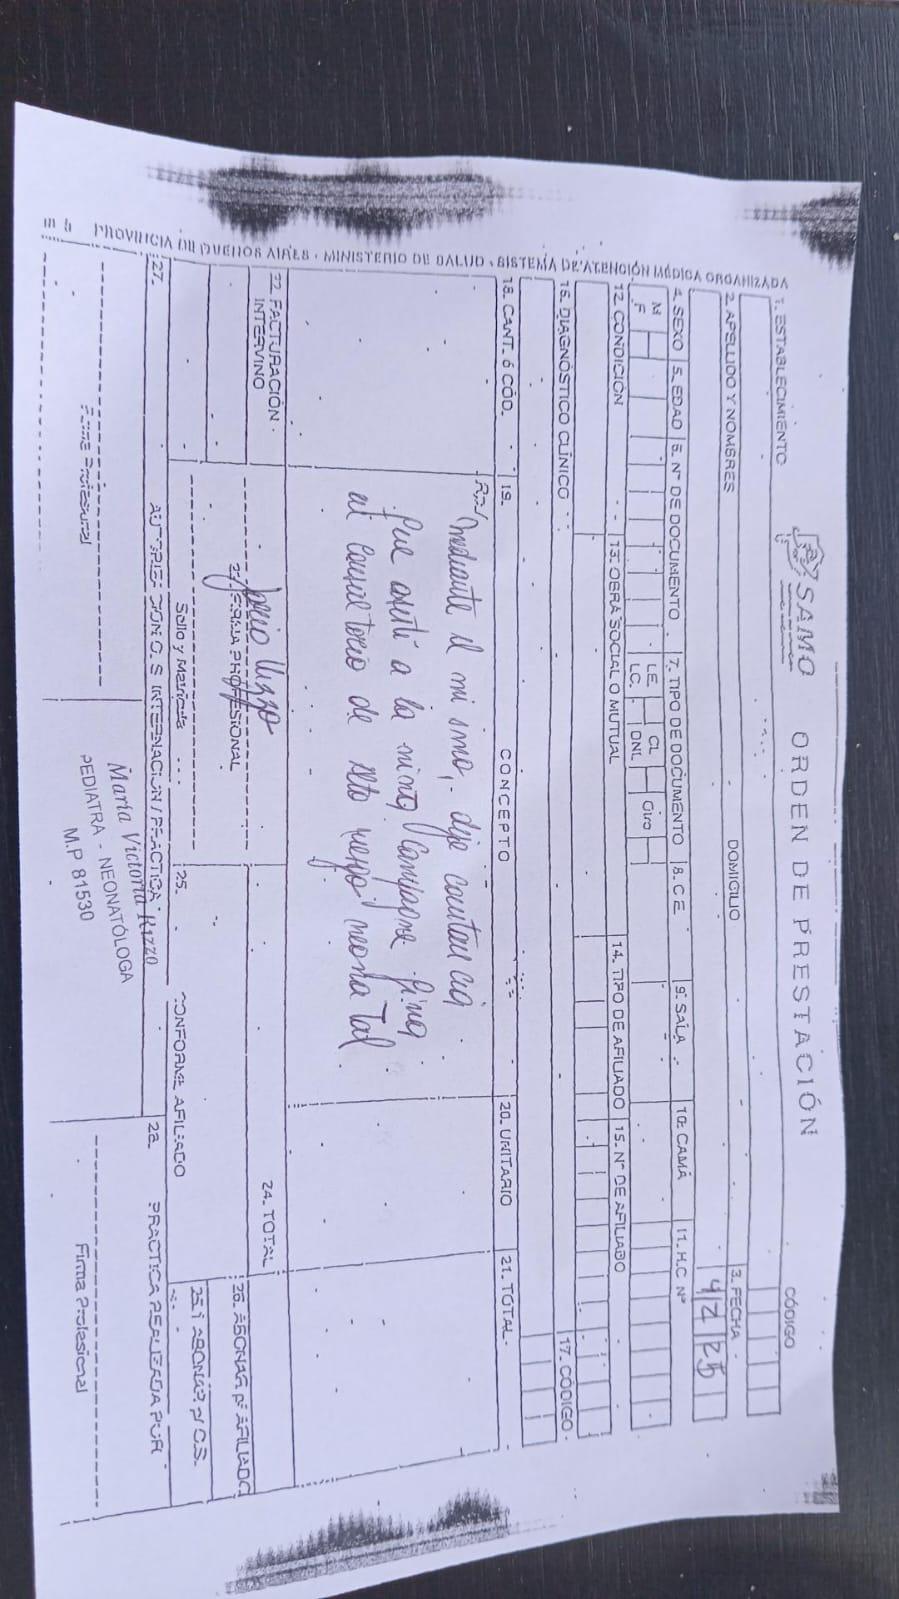 SAMO ORDEN DE PRESTACIÓN
CÓDIGO
1. ESTABLECIMIENTO
2. APELLIDO Y NOMBRES DOMICILIO 3. FECHA
4 2 25
4. SEXO 5. EDAD 6. N° DE DOCUMENTO 7. TIPO DE DOCUMENTO 8. C.E. 9. SALA 10. CAMA 11. H.C N°
M F L.E. L.C. C.I. DNI.
12. CONDICIÓN 13. OBRA SOCIAL O MUTUAL 14. TIPO DE AFILIADO 15. N° DE AFILIADO
16. DIAGNÓSTICO CLÍNICO 17. CÓDIGO
18. CANT. ó CÓD. 19. CONCEPTO 20. UNITARIO 21. TOTAL
mediante el mismo, dejo constancia
que asistí a la
al consultorio de alto riesgo neonatal
22. FACTURACIÓN INTERVINO
23. FIRMA PROFESIONAL
24. TOTAL
Sello y Matrícula
25. CONFORME AFILIADO
26. A ABONAR p/ AFILIADO
A ABONAR p/ O.S.
27. AUTORIZACION O.S INTERNACION / PRACTICA
28. PRACTICA REALIZADA POR
María Victoria Rizzo
PEDIATRA - NEONATÓLOGA
M.P 81530
Firma Profesional
Firma Profesional
PROVINCIA DE BUENOS AIRES - MINISTERIO DE SALUD - SISTEMA DE ATENCIÓN MÉDICA ORGANIZADA